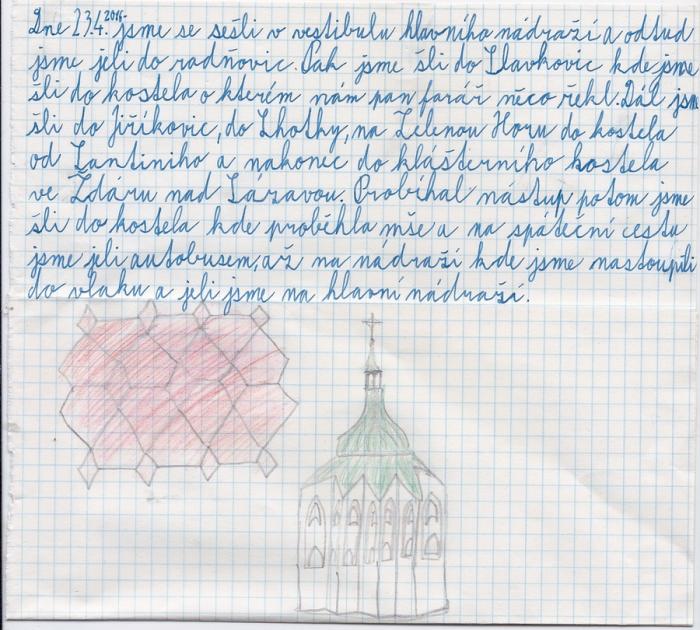 Dne 23.4. 2016 jsme se sešli v vestibulu hlavního nádraží a odtud
jsme jeli do radňovic. Pak jsme šli do Slavkovic kde jsme
šli do kostela o kterém nám pan farář něco řekl. Dál jsm
šli do Jiříkovic, do Lhotky, na Zelenou Horu do kostela
od Santiniho a nakonec do klášterního kostela
ve Žďáru nad Sázavou. Probíhal nástup potom jsme
šli do kostela kde proběhla mše a na spáteční cestu
jsme jeli autobusem, až na nádraží kde jsme nastoupili
do vlaku a jeli jsme na hlavní nádraží.